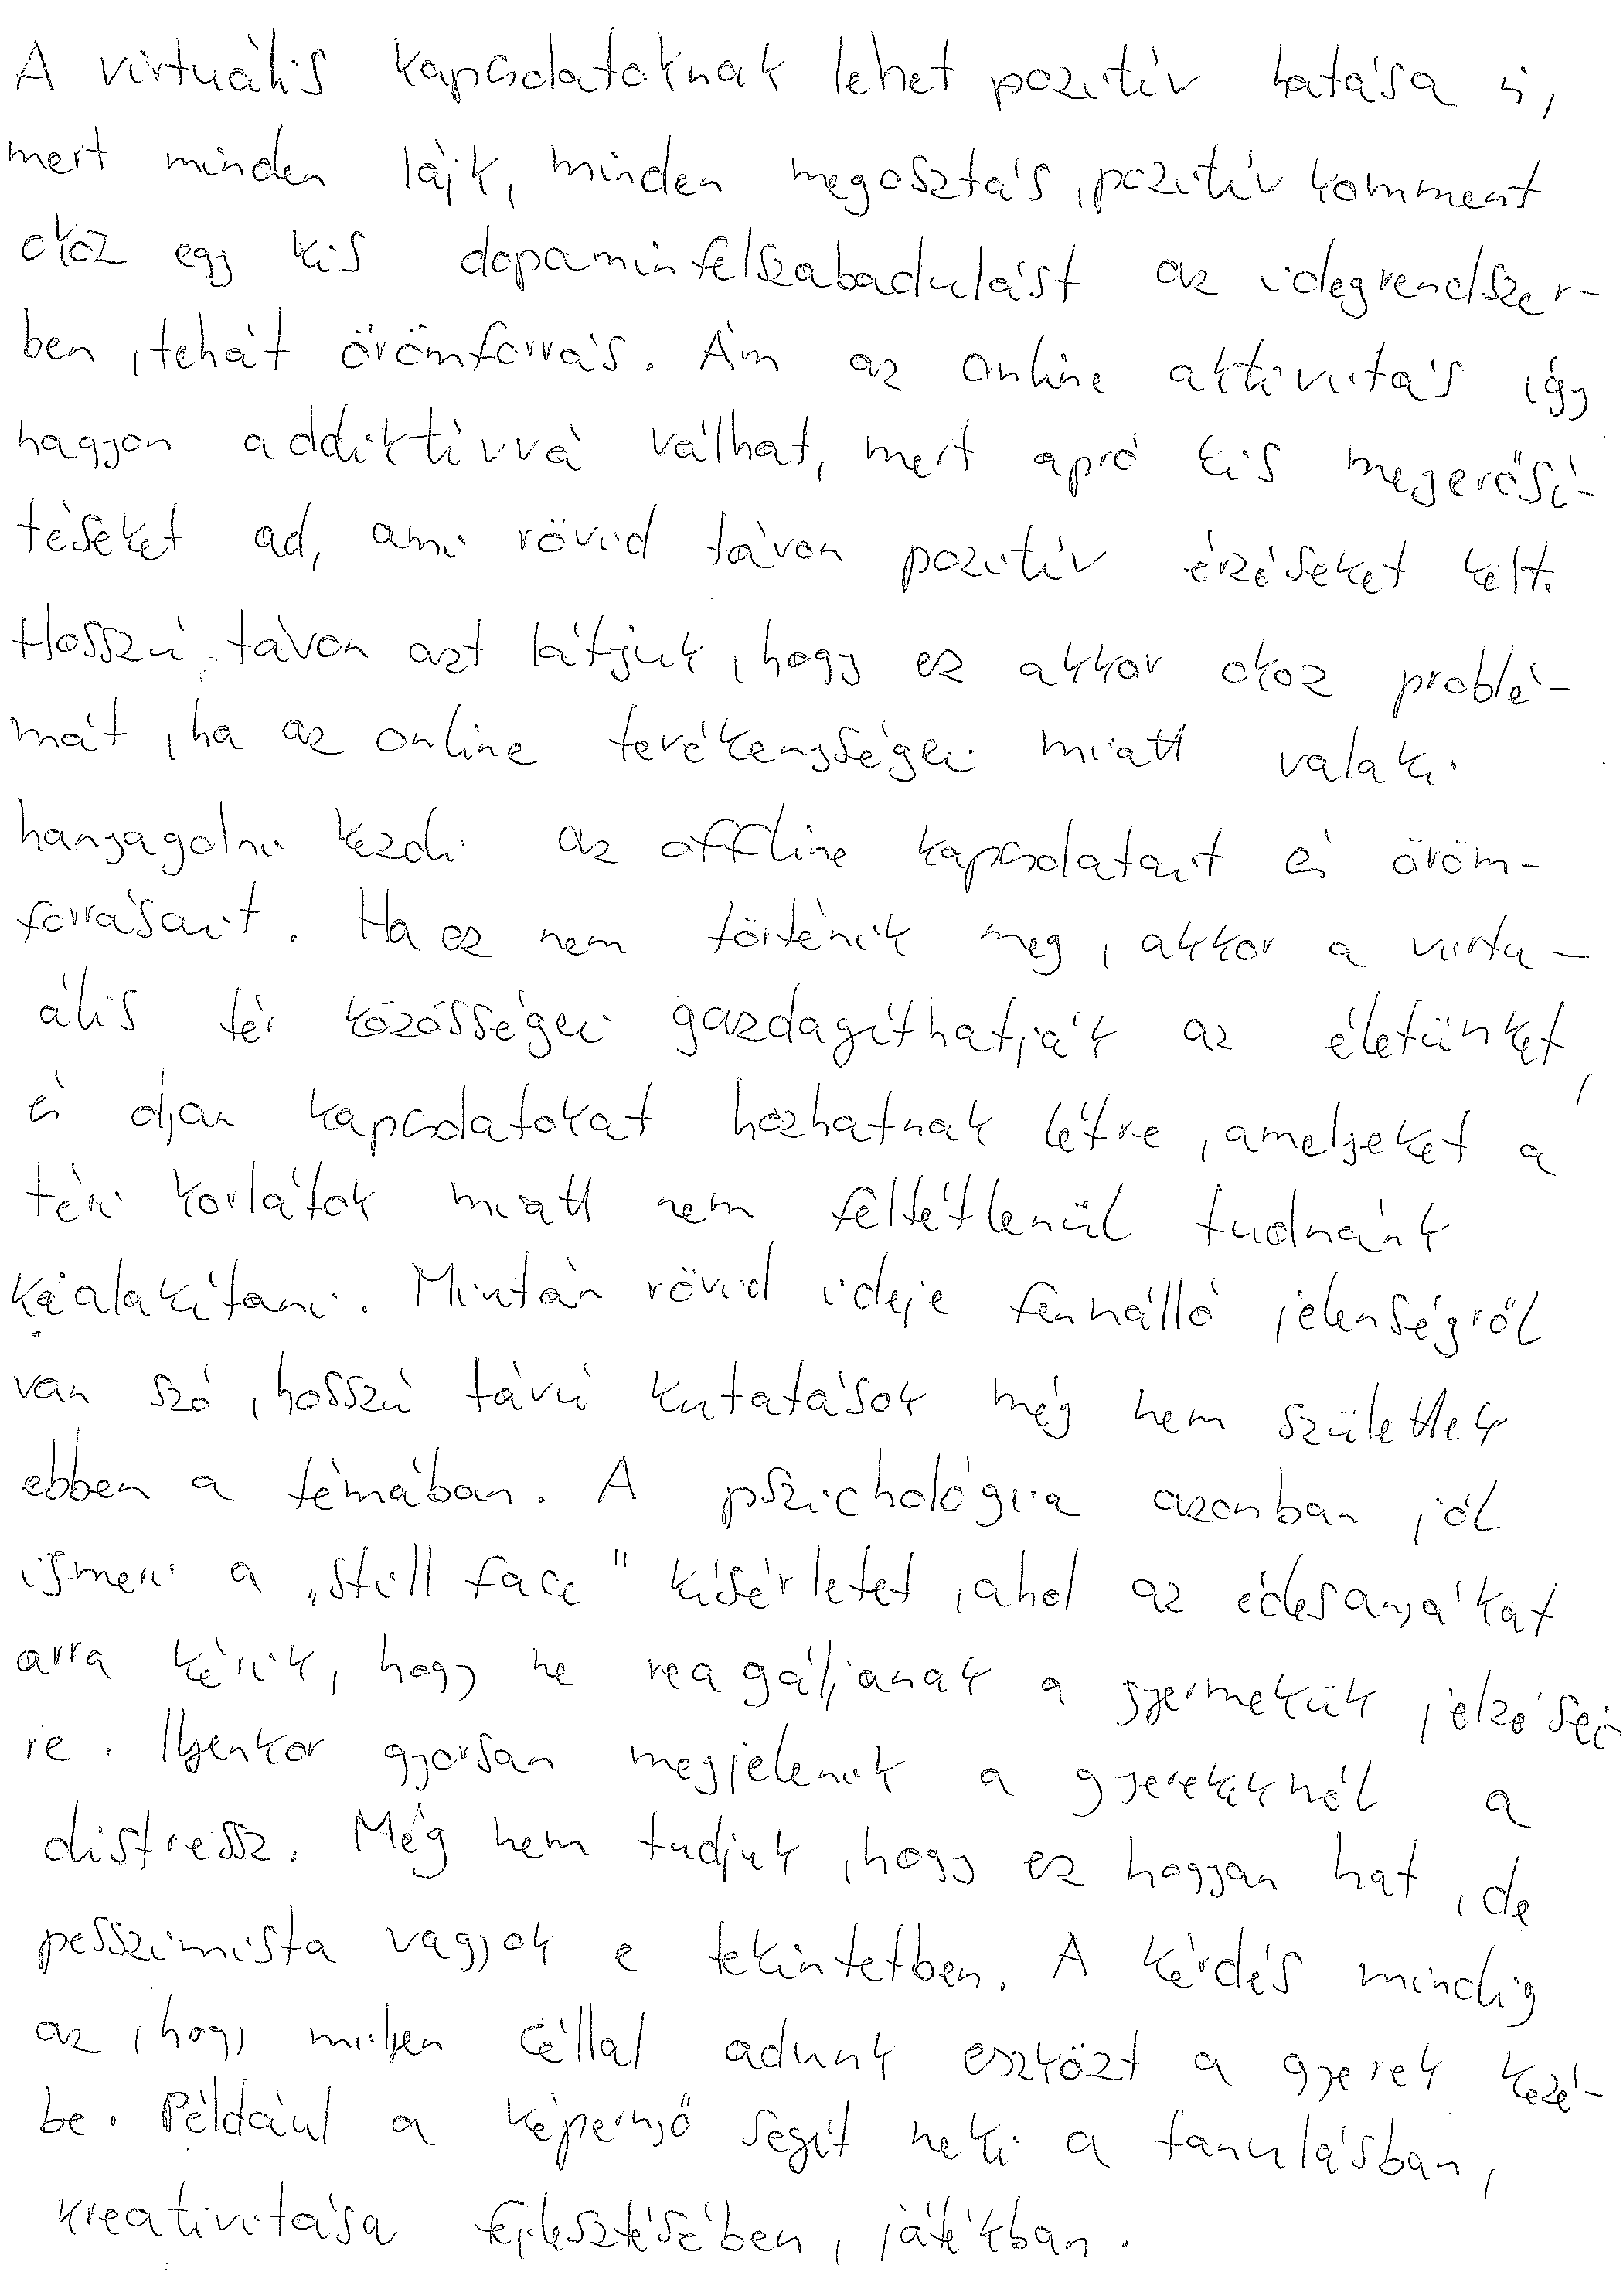 A virtuális kapcsolatoknak lehet pozitív hatása is,
mert minden lájk, minden megosztás, pozitív komment
okoz egy kis dopaminfelszabadulást az idegrendszer-
ben, tehát örömforrás. Ám az online aktivitás így
nagyon addiktívvá válhat, mert apró kis megerősí-
téseket ad, ami rövid távon pozitív érzéseket kelt.
Hosszú távon azt látjuk, hogy ez akkor okoz problé-
mát, ha az online tevékenységei miatt valaki
hanyagolni kezdi az offline kapcsolatait és öröm-
forrásait. Ha ez nem történik meg, akkor a virtu-
ális tér közösségei gazdagíthatják az életünket,
és olyan kapcsolatokat hozhatnak létre, amelyeket a
téri korlátok miatt nem feltétlenül tudnánk
kialakítani. Miután rövid ideje fennálló jelenségről
van szó, hosszú távú kutatások még nem születtek
ebben a témában. A pszichológia azonban jól
ismeri a „still face" kísérletet, ahol az édesanyákat
arra kérik, hogy ne reagáljanak a gyermekük jelzései-
re. Ilyenkor gyorsan megjelenik a gyerekeknél a
distressz. Még nem tudjuk, hogy ez hogyan hat, de
pesszimista vagyok e tekintetben. A kérdés mindig
az, hogy milyen céllal adunk eszközt a gyerek kezé-
be. Például a képernyő segít neki a tanulásban,
kreativitása fejlesztésében, játékban.